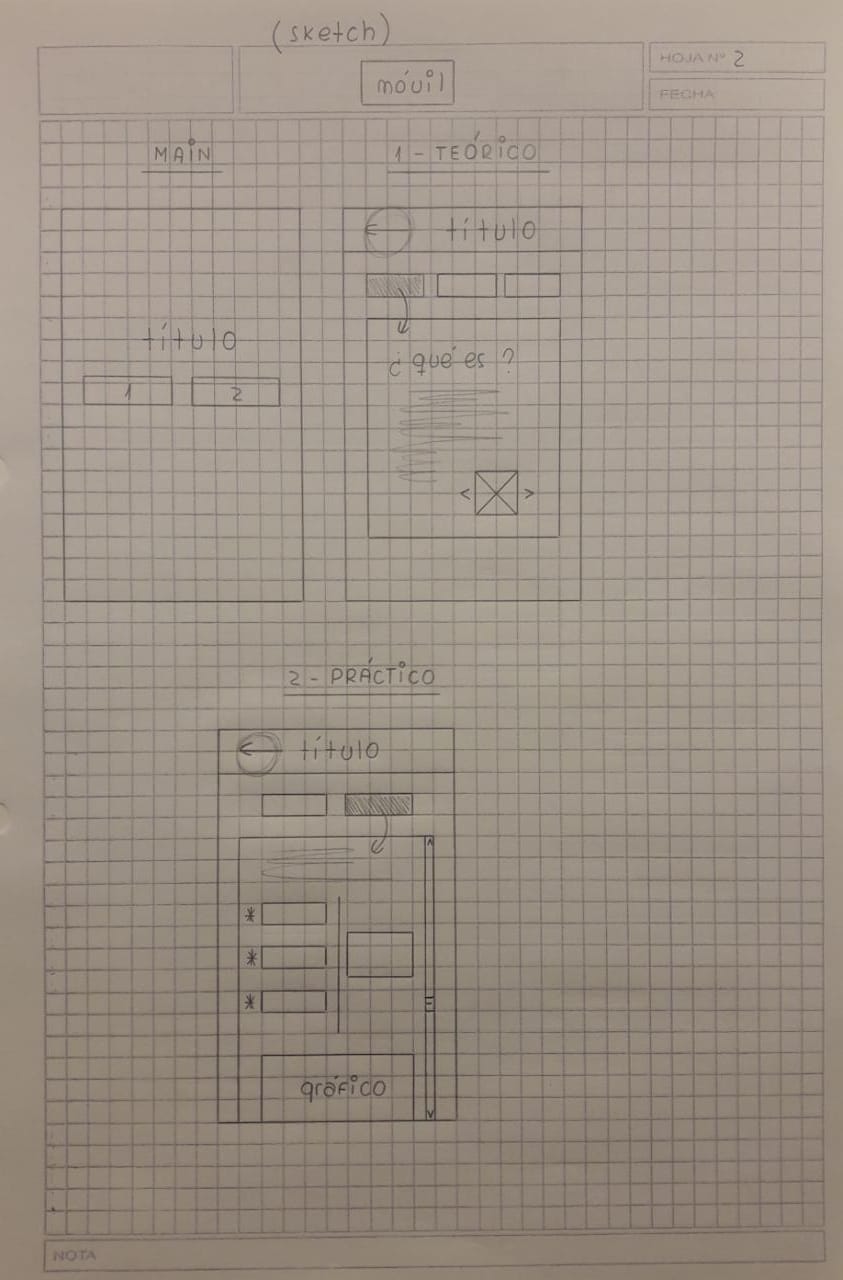 (sketch)
móvil
HOJA Nº 2
FECHA
MAIN
1 - TEÓRICO
título
1
2
título
¿qué es?
< >
2 - PRÁCTICO
título
*
*
*
gráfico
NOTA